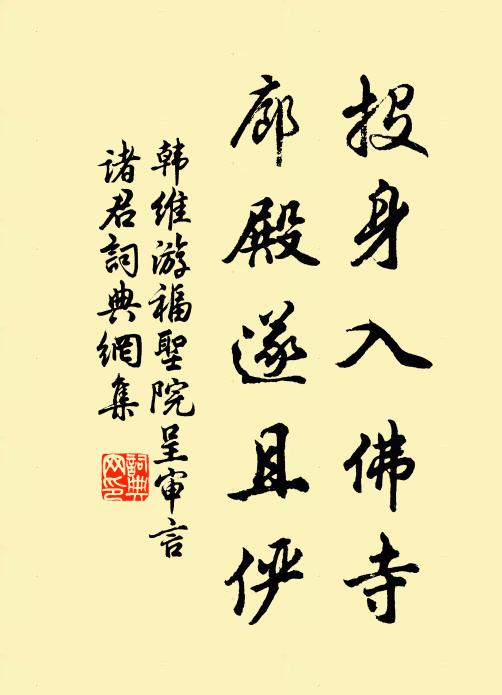 投身入佛寺
廊殿遂且俨
韩维游福聖院呈审言
诸君詞典網集
詞典网印